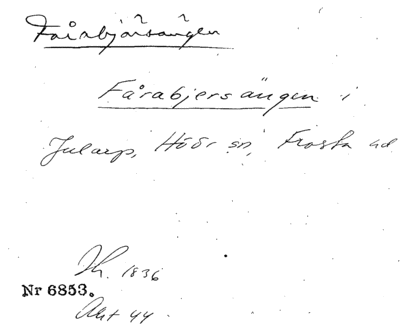 Fårabjärsängen
Fårabjersängen i
Jularp, Höör sn, Frosta hd
Sk. 1836
Nr 6853.
Akt 44